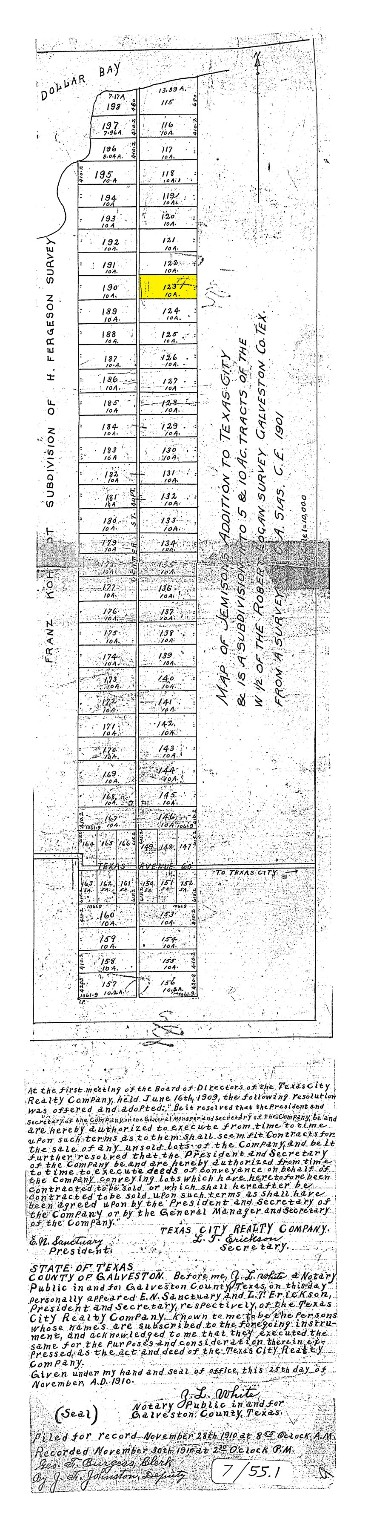 DOLLAR BAY
7.17A. 13.89 A.
198 115
197 116
7.96A 10A.
196 117
8.04A. 10A.
195 118
10.A
194 119
10A
193 120
10A. 10A.
192 121
10A. 10A.
191 122
10A. 10A.
190 123
10A. 10A.
189 124
10A. 10A.
188 125
10A. 10A.
187 126
10A. 10A.
186 127
10A. 10A.
185 128
10A. 10A.
184 129
10A. 10A.
183 130
10A.
182 131
10A. 10A.
181 132
10A.
180 133
10A. 10A.
179 134
10A. 10A.
135
177 136
10A. 10A.
176 137
10A. 10A.
175 138
10A. 10A.
174 139
10A. 10A.
173 140
10A. 10A.
172 141
10A. 10A.
171 142
10A. 10A.
170 143
10A. 10A.
169 144
10A. 10A.
168 145
10A. 10A.
167 146
10A. 10A
164 165 166 149 148 147
TEXAS AVENUE 60'
TO TEXAS CITY
163 162 161 150 151 152
160 153
10A. 10A.
159 154
10A. 10A.
158 155
10A. 10A.
157 156
10.2A. 10.2A.
FRANZ SUBDIVISION OF H. FERGESON SURVEY
MAP OF JEMISON ADDITION TO TEXAS CITY
& IS A SUBDIVISION INTO 5 & 10 AC. TRACTS OF THE
W 1/2 OF THE ROBERT LOGAN SURVEY GALVESTON CO. TEX.
FROM A SURVEY A. SIAS. C.E. 1901
At the first meeting of the Board of Directors of the Texas City
Realty Company, held June 16th, 1909, the following resolution
was offered and adopted: "Be it resolved that the President and
Secretary of the Company or the General Manager and Secretary of the Company, be and
are hereby authorized to execute from time to time
upon such terms as to them shall seem fit Contracts for
the sale of any unsold lots of the Company, and be it
further resolved that the President and Secretary
of the Company be and are hereby authorized from time
to time to execute deeds of conveyance on behalf of
the Company, conveying lots which have heretofore been
contracted to be sold or which shall hereafter be
contracted to be sold upon such terms as shall have
been agreed upon by the President and Secretary of
the Company or by the General Manager and Secretary
of the Company."
TEXAS CITY REALTY COMPANY.
E.N. Sanctuary L. T. Erickson
President. Secretary.
STATE OF TEXAS
COUNTY OF GALVESTON. Before me, J. L. White a Notary
Public in and for Galveston County Texas, on this day
personally appeared E.N. Sanctuary and L.T. Erickson,
President and Secretary, respectively, of the Texas
City Realty Company. Known to me to be the persons
whose names are subscribed to the foregoing instru-
ment, and acknowledged to me that they executed the
same for the purposes and consideration therein ex-
pressed, as the act and deed of the Texas City Realty
Company.
Given under my hand and seal of office, this 25th day of
November, A.D. 1910.
J. L. White
(Seal) Notary Public in and for
Galveston County, Texas.
Filed for record November 28th 1910 at 8 00 Oclock, A.M.
Recorded November 30th 1910 at 2 Oclock P.M.
Geo. F. Burgess, Clerk
By J. F. Johnston, Deputy
7/55.1